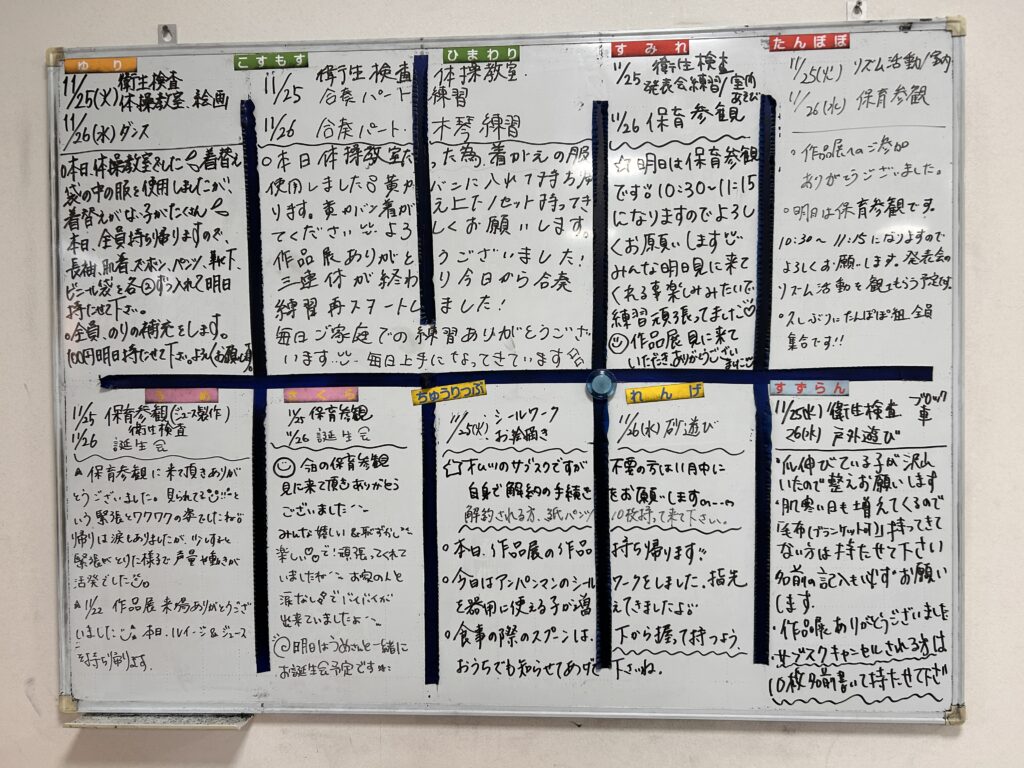 ゆり
11/25(火) 衛生検査
体操教室、絵画
11/26(水) ダンス
○本日、体操教室でした 着替え
袋の中の服を使用しましたが、
着替えがない子がたくさん
本日、全員持ち帰りますので、
長袖、肌着、ズボン、パンツ、靴下、
ビニール袋を各②ずつ入れて明日
持たせて下さい。
○全員、のりの補充をします。
100円明日持たせて下さい。よろしくお願い
こすもす
ひまわり
11/25 衛生検査 体操教室
合奏パート 練習
11/26 合奏パート 木琴練習
○本日体操教室だった為、着がえの服
使用しました 黄カバンに入れて持ち
ります。黄カバン着がえ上下1セット持ってき
てください よろしくお願いします。
作品展ありがとうございました!
三連休が終わり今日から合奏
練習再スタートしました!
毎日ご家庭での練習ありがとうござ
います 毎日上手になってきています
すみれ
11/25 衛生検査
発表会練習/室内
あそび
11/26 保育参観
☆明日は保育参観
です。10:30~11:15
になりますのでよろし
くお願いします
みんな明日見に来て
くれる事楽しみみたいで
練習頑張ってました♡
作品展見に来て
いただきありがとうござい
ました
たんぽぽ
11/25(火) リズム活動/室内
11/26(水) 保育参観
・作品展へのご参加
ありがとうございました。
・明日は保育参観です。
10:30~11:15になりますので
よろしくお願いします。発表会の
リズム活動を観てもらう予定です。
・久しぶりにたんぽぽ組、全員
集合です!!
うめ
11/25 保育参観(ジュース製作)
衛生検査
11/26 誕生会
保育参観に来て頂きありが
とうございました。見られてる
という緊張とワクワクの姿でしたね
帰りは涙しありましたが、少しずつ
緊張がとりた様子で声量や動きが
活発でした
11/22 作品展来場ありがとうござ
いました 本日、ルイージ&ジュース
を持ち帰ります。
さくら
11/25 保育参観
11/26 誕生会
今日の保育参観
見に来て頂きありがとう
ございました
みんな嬉しい&恥ずかし
楽しい で!頑張ってくれて
いましたね お家の人と
涙なしでバイバイが
出来ていましたよ
明日はうめさんと一緒に
お誕生会予定です
ちゅうりっぷ
れんげ
11/25(火) シールワーク
お絵描き
11/26(水) 砂遊び
☆オムツのサブスクですが不要の方は11月中に
自身で解約の手続きをお願いします
解約される方、紙パンツ10枚持って来て下さい。
○本日、作品展の作品持ち帰ります
○今日はアンパンマンのシールワークをしました。指先
を器用に使える子が増えてきましたよ
○食事の際のスプーンは、下から握って持つよう
おうちでも知らせてあげて下さいね。
すずらん
11/25(火) 衛生検査 ブロック
車
26(水) 戸外遊び
・爪伸びている子が沢山
いたので整えお願いします
・肌寒い日も増えてくるので
毛布(ブランケット可)持ってきて
ない方は持たせて下さい
名前の記入も必ずお願い
します。
・作品展ありがとうございました
サブスクキャンセルされる方は
10枚名前書いて持たせて下さい